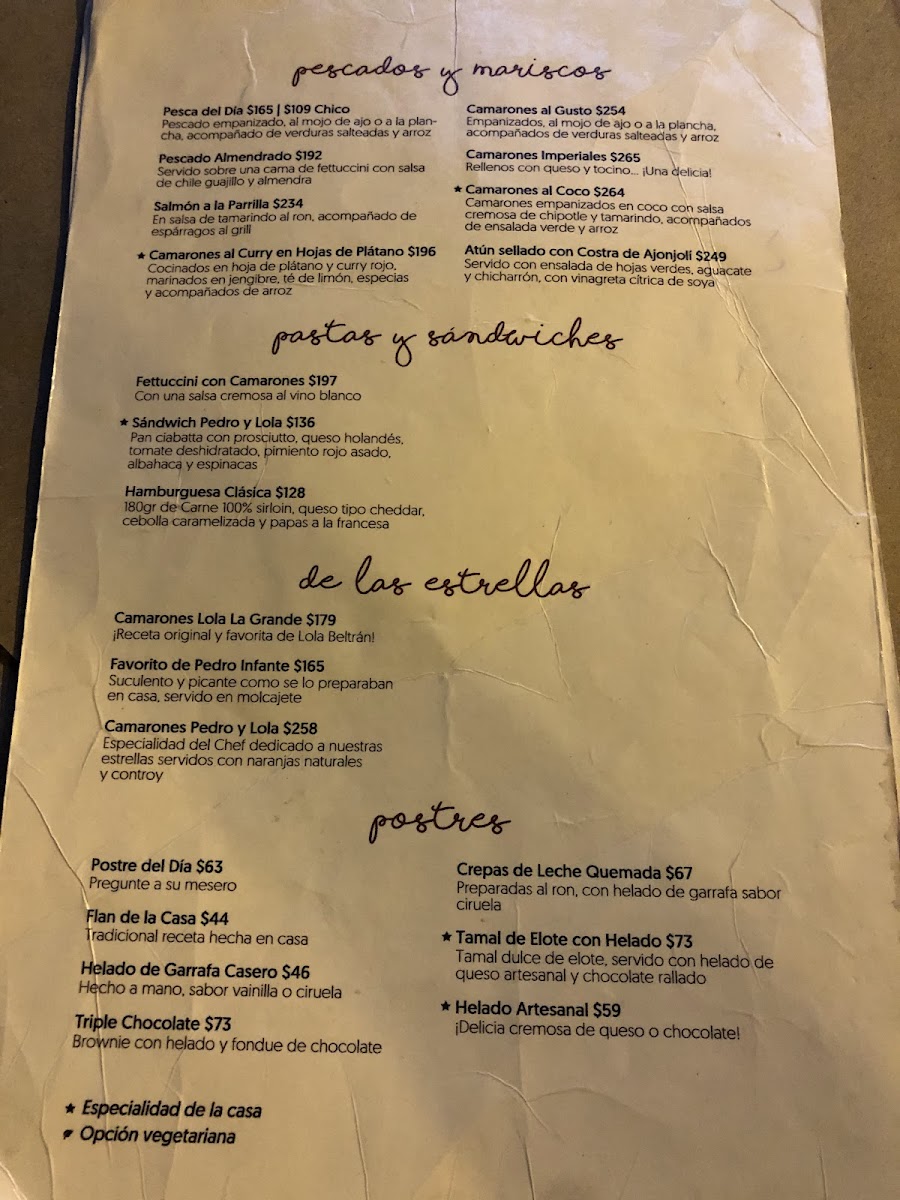 pescados y mariscos
Pesca del Día $165 | $109 Chico
Pescado empanizado, al mojo de ajo o a la plan-
cha, acompañado de verduras salteadas y arroz
Pescado Almendrado $192
Servido sobre una cama de fettuccini con salsa
de chile guajillo y almendra
Salmón a la Parrilla $234
En salsa de tamarindo al ron, acompañado de
espárragos al grill
★ Camarones al Curry en Hojas de Plátano $196
Cocinados en hoja de plátano y curry rojo,
marinados en jengibre, té de limón, especias
y acompañados de arroz
Camarones al Gusto $254
Empanizados, al mojo de ajo o a la plancha,
acompañados de verduras salteadas y arroz
Camarones Imperiales $265
Rellenos con queso y tocino... ¡Una delicia!
★ Camarones al Coco $264
Camarones empanizados en coco con salsa
cremosa de chipotle y tamarindo, acompañados
de ensalada verde y arroz
Atún sellado con Costra de Ajonjolí $249
Servido con ensalada de hojas verdes, aguacate
y chicharrón, con vinagreta cítrica de soya
pastas y sándwiches
Fettuccini con Camarones $197
Con una salsa cremosa al vino blanco
★ Sándwich Pedro y Lola $136
Pan ciabatta con prosciutto, queso holandés,
tomate deshidratado, pimiento rojo asado,
albahaca y espinacas
Hamburguesa Clásica $128
180gr de Carne 100% sirloin, queso tipo cheddar,
cebolla caramelizada y papas a la francesa
de las estrellas
Camarones Lola La Grande $179
¡Receta original y favorita de Lola Beltrán!
Favorito de Pedro Infante $165
Suculento y picante como se lo preparaban
en casa, servido en molcajete
Camarones Pedro y Lola $258
Especialidad del Chef dedicado a nuestras
estrellas servidos con naranjas naturales
y controy
postres
Postre del Día $63
Pregunte a su mesero
Flan de la Casa $44
Tradicional receta hecha en casa
Helado de Garrafa Casero $46
Hecho a mano, sabor vainilla o ciruela
Triple Chocolate $73
Brownie con helado y fondue de chocolate
Crepas de Leche Quemada $67
Preparadas al ron, con helado de garrafa sabor
ciruela
★ Tamal de Elote con Helado $73
Tamal dulce de elote, servido con helado de
queso artesanal y chocolate rallado
★ Helado Artesanal $59
¡Delicia cremosa de queso o chocolate!
★ Especialidad de la casa
Opción vegetariana